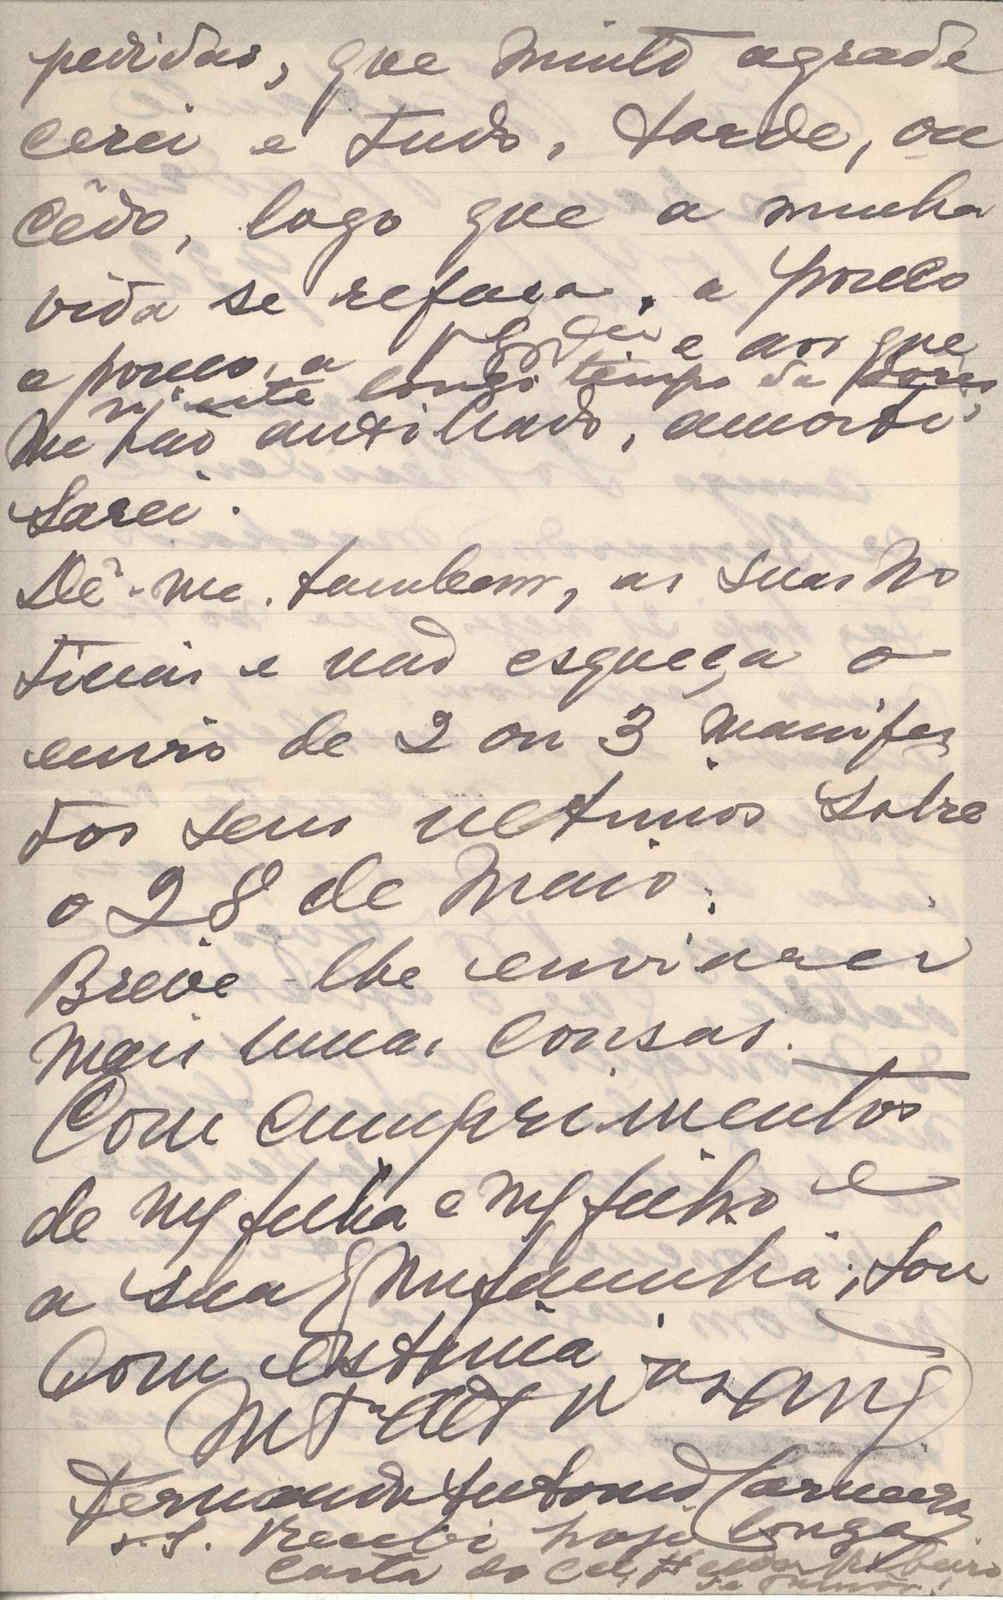 pedidas, que muito agrade
cerei e tudo, tarde, ou
cêdo, logo que a minha
vida se refaça, a pouco
e pouco, a e aos que
n'este longo tempo da
me tão auxiliado, amorti
sarei.
Dê-me. tambem, as suas no
ticias e não esqueça o
envio de 2 ou 3 manifes
tos seus ultimos sobre
o 28 de Maio.
Breve lhe enviarei
mais umas cousas.
Com cumprimentos
de mª filha e mº filho e
a sua Exmª familia, sou
Com estima
Mto Atto
Fernando Antonio Carneiro
P.S. Recebi hoje Longa
carta do Cel. Ribeiro